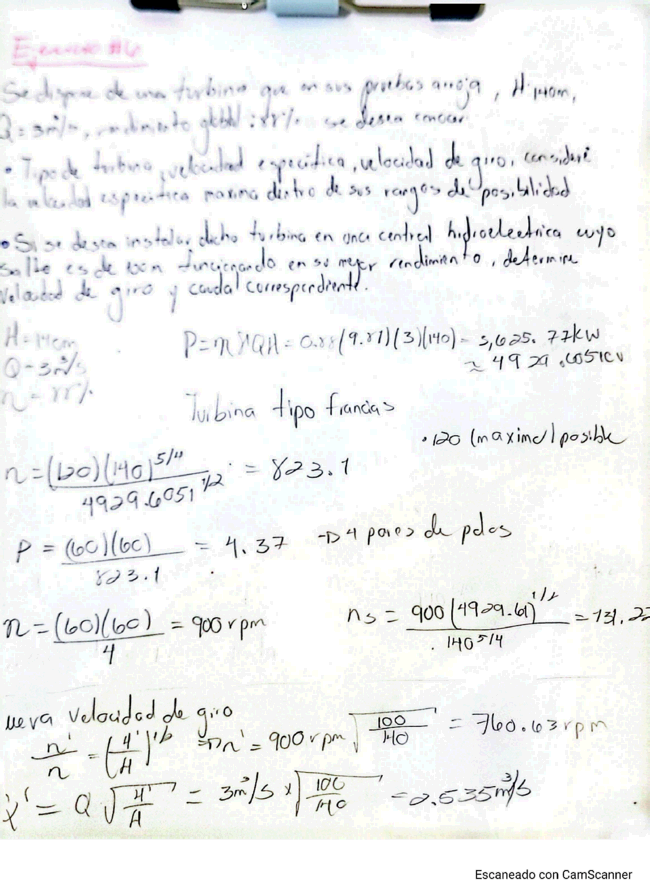 Ejercicio #6
Se dispone de una turbina que en sus pruebas arroja, H:140m,
Q=3m³/s, rendimiento global:88% se desea conocer
• Tipo de turbina, velocidad especifica, velocidad de giro, considere
la velocidad especifica maxima dentro de sus rangos de posibilidad
• Si se desea instalar dicho turbina en una central hidroelectrica cuyo
salto es de 100m funcionando en su mejor rendimiento, determine
velocidad de giro y caudal correspondiente.
H=140m
Q=3m³/s
n=88%
P=n γQH=0.88(9.81)(3)(140)=3,625.77kW
≈4929.6051CV
Turbina tipo francias
•120 (maximo) posible
n=(120)(140)^5/4 / 4929.6051^1/2 = 823.1
P=(60)(60)/823.1 = 4.37 → 4 pares de polos
n=(60)(60)/4 = 900 rpm
ns=900(4929.61)^1/2 / 140^5/4 = 131.22
ueva velocidad de giro
n'/n=(H'/H)^1/2 ⇒ n'=900rpm √100/140 = 760.63rpm
= Q √H'/H = 3m³/s × √100/140 = 2.535m³/s
Escaneado con CamScanner